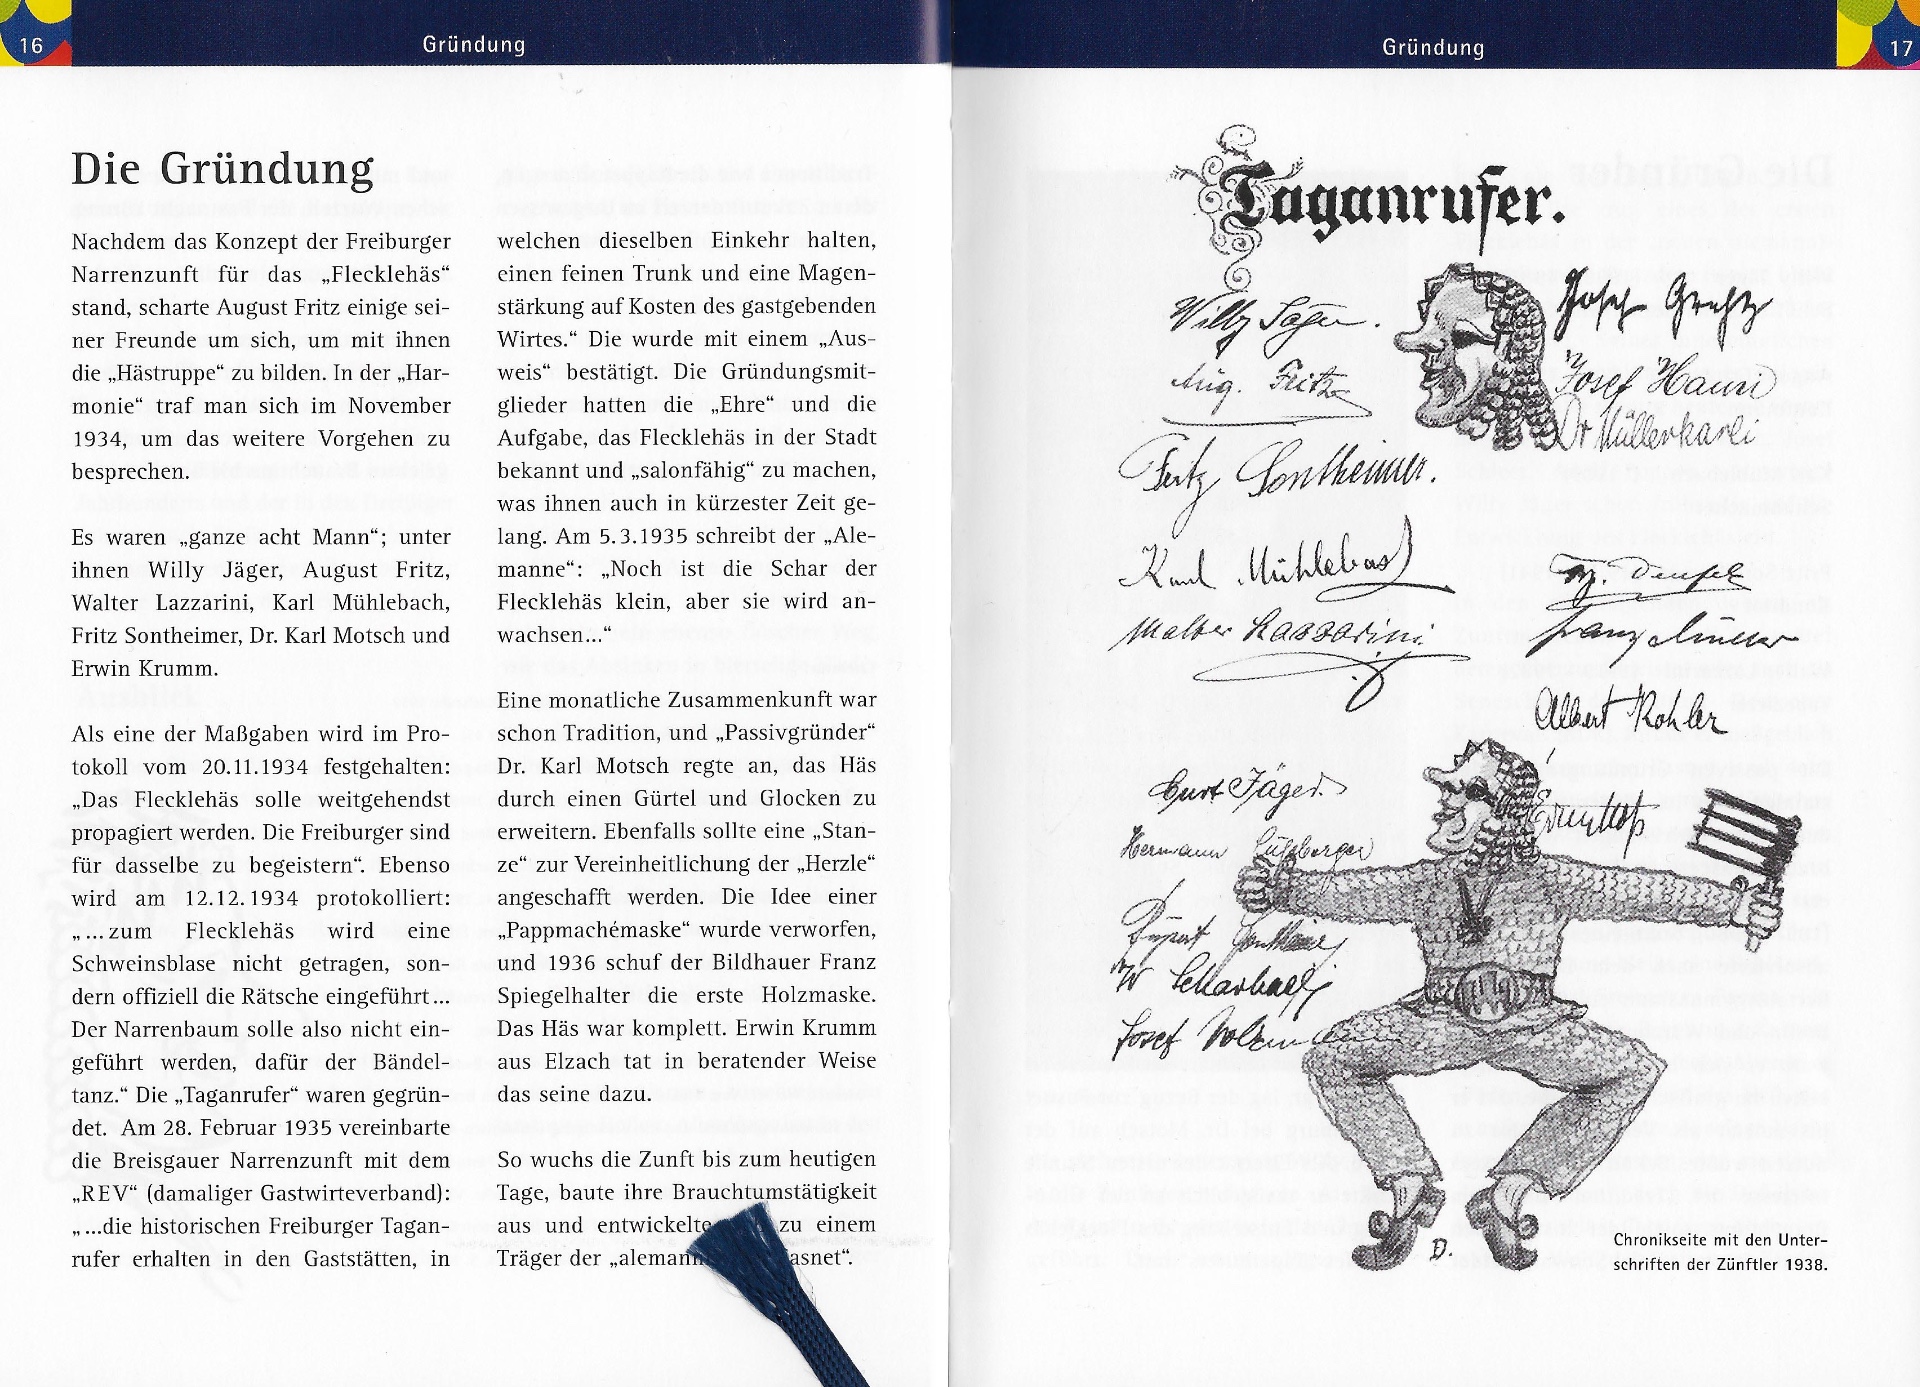 16
Gründung
Die Gründung
Nachdem das Konzept der Freiburger
Narrenzunft für das „Flecklehäs“
stand, scharte August Fritz einige sei-
ner Freunde um sich, um mit ihnen
die „Hästruppe“ zu bilden. In der „Har-
monie“ traf man sich im November
1934, um das weitere Vorgehen zu
besprechen.
Es waren „ganze acht Mann“; unter
ihnen Willy Jäger, August Fritz,
Walter Lazzarini, Karl Mühlebach,
Fritz Sontheimer, Dr. Karl Motsch und
Erwin Krumm.
Als eine der Maßgaben wird im Pro-
tokoll vom 20.11.1934 festgehalten:
„Das Flecklehäs solle weitgehendst
propagiert werden. Die Freiburger sind
für dasselbe zu begeistern“. Ebenso
wird am 12.12.1934 protokolliert:
„...zum Flecklehäs wird eine
Schweinsblase nicht getragen, son-
dern offiziell die Rätsche eingeführt...
Der Narrenbaum solle also nicht ein-
geführt werden, dafür der Bändel-
tanz.“ Die „Taganrufer“ waren gegrün-
det. Am 28. Februar 1935 vereinbarte
die Breisgauer Narrenzunft mit dem
„REV“ (damaliger Gastwirteverband):
„...die historischen Freiburger Tagan-
rufer erhalten in den Gaststätten, in
welchen dieselben Einkehr halten,
einen feinen Trunk und eine Magen-
stärkung auf Kosten des gastgebenden
Wirtes.“ Die wurde mit einem „Aus-
weis“ bestätigt. Die Gründungsmit-
glieder hatten die „Ehre“ und die
Aufgabe, das Flecklehäs in der Stadt
bekannt und „salonfähig“ zu machen,
was ihnen auch in kürzester Zeit ge-
lang. Am 5.3.1935 schreibt der „Ale-
manne“: „Noch ist die Schar der
Flecklehäs klein, aber sie wird an-
wachsen...“
Eine monatliche Zusammenkunft war
schon Tradition, und „Passivgründer“
Dr. Karl Motsch regte an, das Häs
durch einen Gürtel und Glocken zu
erweitern. Ebenfalls sollte eine „Stan-
ze“ zur Vereinheitlichung der „Herzle“
angeschafft werden. Die Idee einer
„Pappmachémaske“ wurde verworfen,
und 1936 schuf der Bildhauer Franz
Spiegelhalter die erste Holzmaske.
Das Häs war komplett. Erwin Krumm
aus Elzach tat in beratender Weise
das seine dazu.
So wuchs die Zunft bis zum heutigen
Tage, baute ihre Brauchtumstätigkeit
aus und entwickelte zu einem
Träger der „alemann asnet“.
Gründung
17
Taganrufer.
Willy Jäger.
Josef
Aug. Fritz
Josef Hauri
Dr Müllerkarli
Fritz Sontheimer.
Karl Mühlebach
Walter Lazzarini
Franz
Albert Kohler
Curt Jäger.
Hermann
Josef
D.
Chronikseite mit den Unter-
schriften der Zünftler 1938.